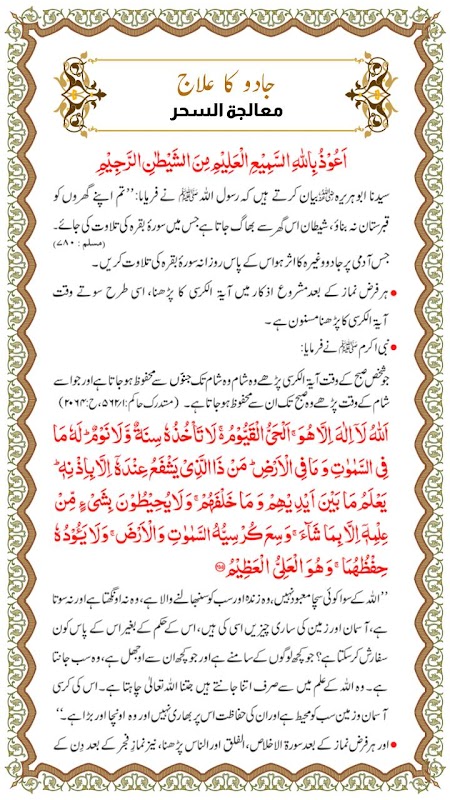 جادو کا علاج
معالجة السحر
اَعُوْذُ بِاللهِ السَّمِيْعِ الْعَلِيْمِ مِنَ الشَّيْطٰنِ الرَّجِيْمِ
سیدنا ابو ہریرہ رضی اللہ عنہ بیان کرتے ہیں کہ رسول اللہ ﷺ نے فرمایا: ’’تم اپنے گھروں کو
قبرستان نہ بناؤ، شیطان اس گھر سے بھاگ جاتا ہے جس میں سورۂ بقرہ کی تلاوت کی جائے۔ (مسلم: ۷۸۰)
جس آدمی پر جادو وغیرہ کا اثر ہو اس کے پاس روزانہ سورۂ بقرہ کی تلاوت کریں۔
• ہر فرض نماز کے بعد مشروع اذکار میں آیۃ الکرسی کا پڑھنا، اسی طرح سوتے وقت
آیۃ الکرسی کا پڑھنا مسنون ہے۔
• نبی اکرم ﷺ نے فرمایا:
جو شخص صبح کے وقت آیۃ الکرسی پڑھے وہ شام تک جنوں سے محفوظ ہو جاتا ہے اور جو اسے
شام کے وقت پڑھے وہ صبح تک ان سے محفوظ ہو جاتا ہے۔ (مستدرک حاکم: ۵۶۲/۱، ح: ۲۰۶۴)
اَللّٰهُ لَآ اِلٰهَ اِلَّا هُوَ ۚ اَلْحَيُّ الْقَيُّوْمُ ۚ لَا تَاْخُذُهٗ سِنَةٌ وَّلَا نَوْمٌ ؕ لَهٗ مَا
فِي السَّمٰوٰتِ وَمَا فِي الْاَرْضِ ؕ مَنْ ذَا الَّذِيْ يَشْفَعُ عِنْدَهٗٓ اِلَّا بِاِذْنِهٖ ؕ
يَعْلَمُ مَا بَيْنَ اَيْدِيْهِمْ وَمَا خَلْفَهُمْ ۚ وَلَا يُحِيْطُوْنَ بِشَيْءٍ مِّنْ
عِلْمِهٖٓ اِلَّا بِمَا شَآءَ ۚ وَسِعَ كُرْسِيُّهُ السَّمٰوٰتِ وَالْاَرْضَ ۚ وَلَا يَئُوْدُهٗ
حِفْظُهُمَا ۚ وَهُوَ الْعَلِيُّ الْعَظِيْمُ ﴿۲۵۵﴾
’’اللہ کے سوا کوئی سچا معبود نہیں، وہ زندہ اور سب کو سنبھالنے والا ہے، وہ نہ اونگھتا ہے اور نہ سوتا
ہے، آسمان اور زمین کی ساری چیزیں اسی کی ہیں، اس کے حکم کے بغیر اس کے پاس کون
سفارش کر سکتا ہے؟ جو کچھ لوگوں کے سامنے ہے اور جو کچھ ان سے اوجھل ہے، وہ سب جانتا
ہے۔ وہ اللہ کے علم میں سے صرف اتنا جانتے ہیں جتنا اللہ تعالیٰ چاہتا ہے۔ اس کی کرسی
آسمان و زمین سب کو محیط ہے اور ان کی حفاظت اس پر بھاری نہیں اور وہ اونچا اور بڑا ہے۔‘‘
• اور ہر فرض نماز کے بعد سورۃ الاخلاص، الفلق اور الناس پڑھنا، نیز نمازِ فجر کے بعد دن کے